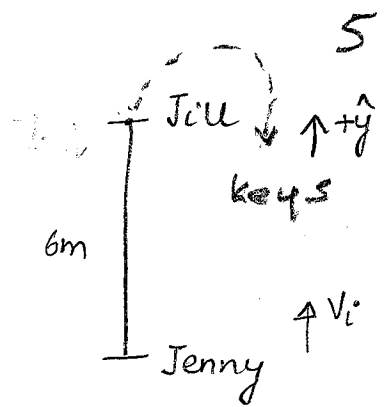 5
Jill
+ŷ
keys
6m
Vi
Jenny